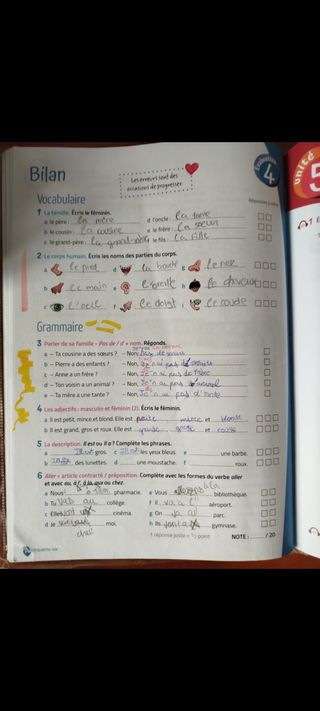 Bilan
Les erreurs sont des
occasions de progresser
Évaluation
4
unité
5
Vocabulaire
Réponses justes
1 La famille. Écris le féminin.
a le père : la mère
d l'oncle : la tante
b le cousin : la cousine
e le frère : la sœur
c le grand-père : la grand-mère
f le fils : la fille
2 Le corps humain. Écris les noms des parties du corps.
a le pied d la bouche g le nez
b la main e h le cheveux
c L'oeil f le doigt i le coude
Grammaire
3 Parler de sa famille - Pas de / d' + nom. Réponds.
a – Ta cousine a des sœurs ? – Non, pas de sœurs
b – Pierre a des enfants ? – Non, je n'ai pas d'enfants
c – Anne a un frère ? – Non, Je n'ai pas de frère
d – Ton voisin a un animal ? – Non, Je n'ai pas animal
e – Ta mère a une tante ? – Non, Je n'ai pas d' tante
4 Les adjectifs : masculin et féminin (2). Écris le féminin.
a Il est petit, mince et blond. Elle est petite, mince et blonde
b Il est grand, gros et roux. Elle est grande, grosse et rousse
5 La description. Il est ou Il a ? Complète les phrases.
a Il est gros. c Il est les yeux bleus. e une barbe.
b des lunettes. d une moustache. f roux.
6 Aller + article contracté / préposition. Complète avec les formes du verbe aller
et avec au, à l', à la, aux ou chez.
a Nous pharmacie. e Vous à la bibliothèque.
b Tu vas au collège. f Il va à l' aéroport.
c Elles vont cinéma. g On va al parc.
d Je moi. h Ils vont gymnase.
chez
1 réponse juste = ½ point
NOTE : / 20